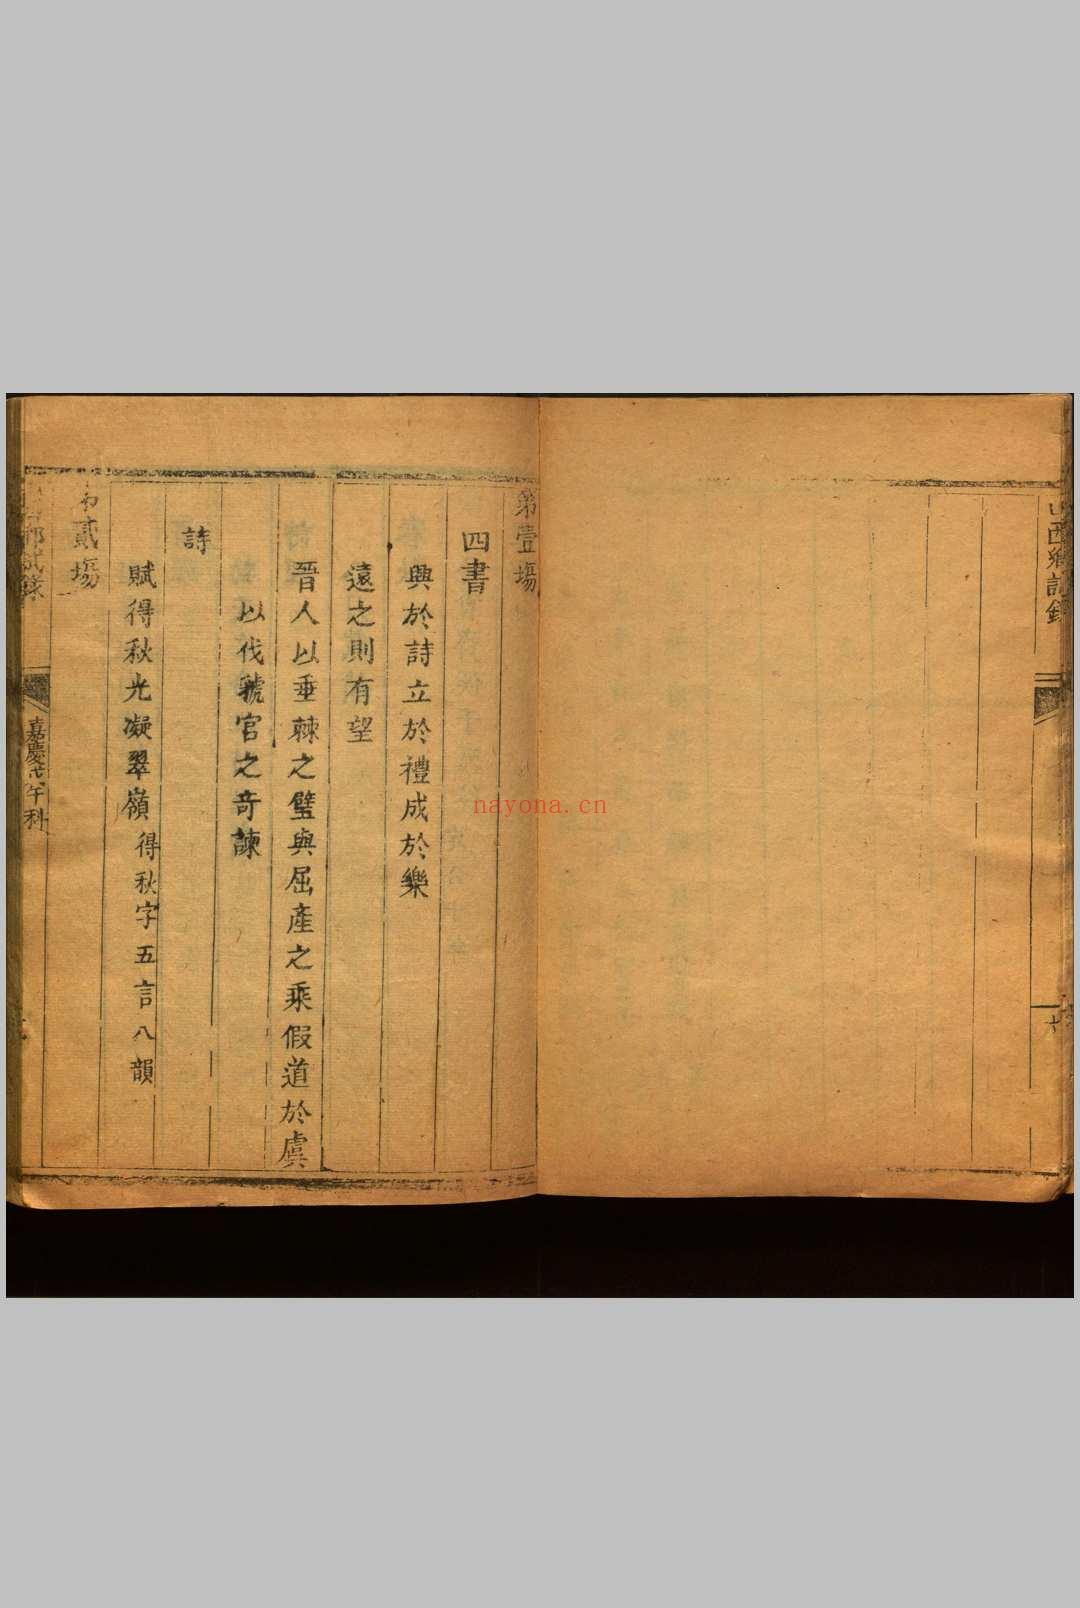 山西鄉試錄
六
第壹場
四書
興於詩立於禮成於樂
遠之則有望
晉人以垂棘之璧與屈產之乘假道於虞
以伐虢宮之奇諫
詩
賦得秋光凝翠嶺得秋字五言八韻
貳場
鄉試錄
嘉慶戊午科
nayona.cn